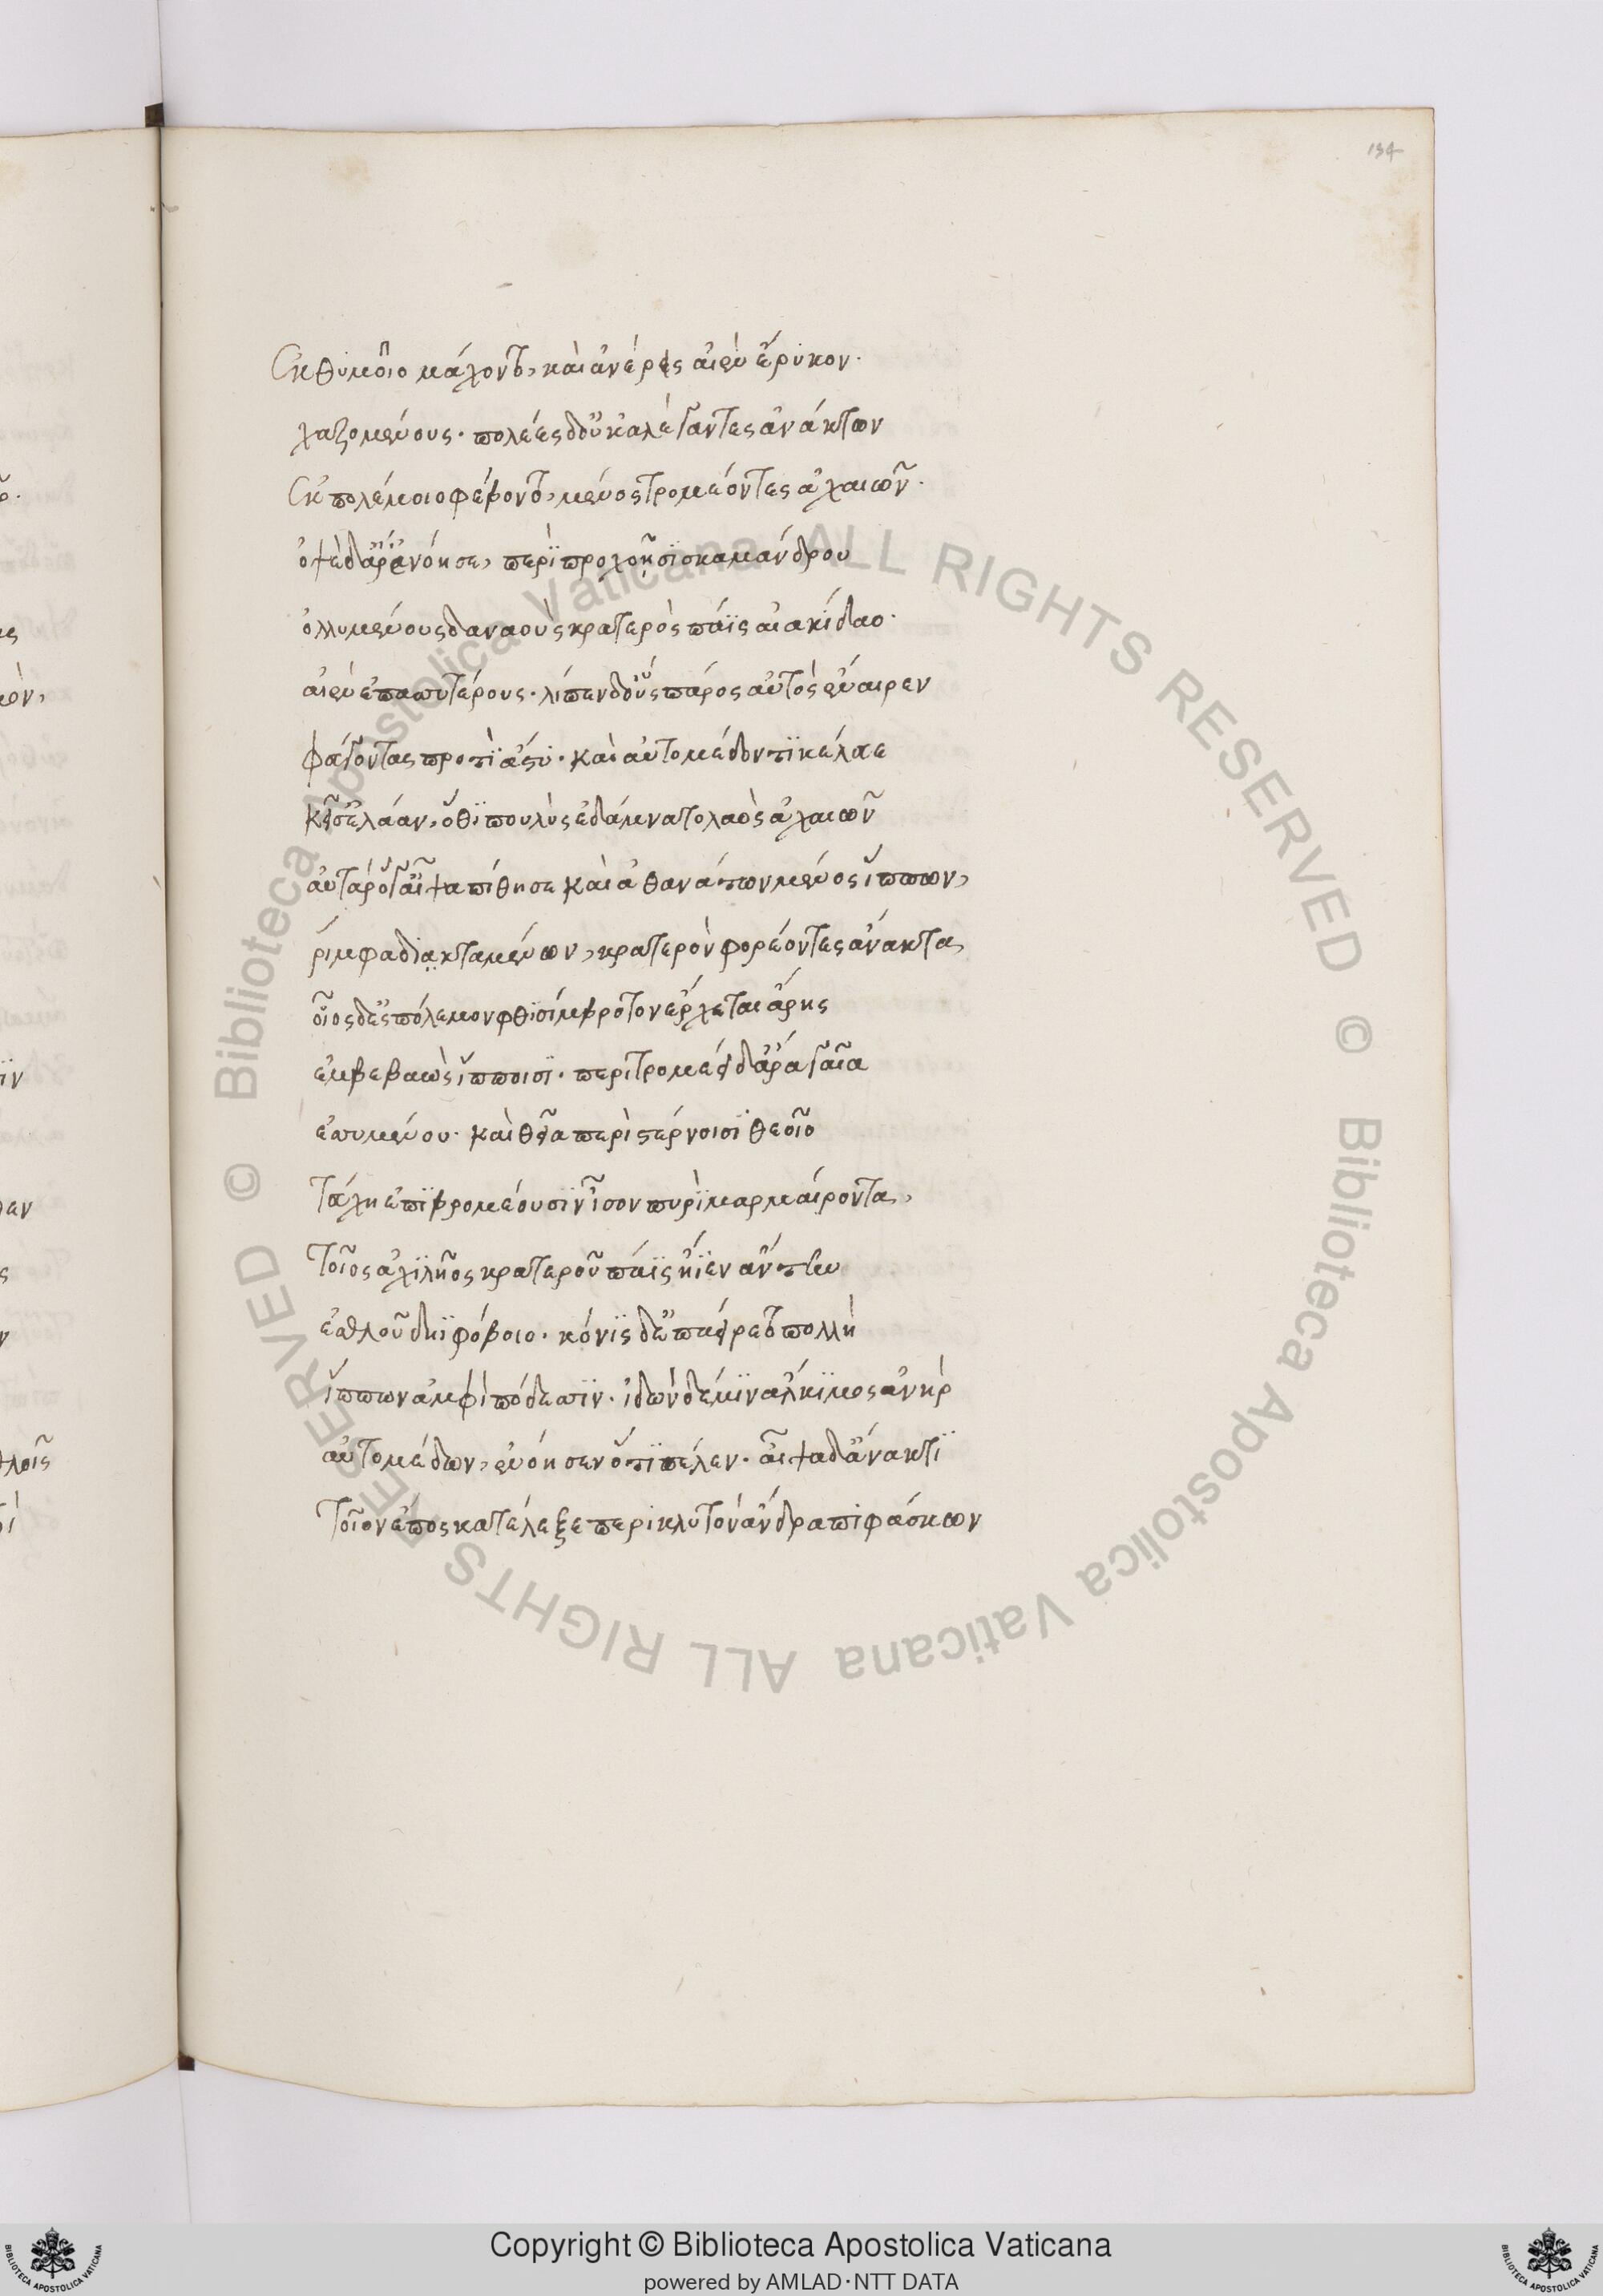 134
Ἐκ θυμοῖο μάχοντο, καὶ ἀνέρες αἰὲν ἔρυκον.
χαζομένους. πολέες δ' οὐκ ἀλέγαντες ἀνάκτων
Ἐκ πολέμοιο φέβοντο, μένος τρομέοντες ἀχαιῶν.
ὁτὲ δ' ἄρ ἐνόησε, περὶ προχοῇσι σκαμάνδρου
ὀλλυμένους δαναοὺς κρατερὸς πάϊς αἰακίδαο.
αἰὲν ἐπασσυτέρους. λίπεν δ' οὓς πάρος αὐτὸς ἔναιρεν
φεύγοντας προτὶ ἄστυ. καὶ αὐτομέδοντι κέλσε
κεῖσ' ἐλάαν, ὅθι πουλὺς ἐδάμνατο λαὸς ἀχαιῶν
αὐτὰρ ὅγ' αἶψα πίθησε καὶ ἀθανάτων μένος ἵππων,
ῥίμφα διακταμένων, κρατερὸν φορέοντες ἄνακτα,
οἷος δ' ἐς πόλεμον φθισίμβροτον ἔρχεται ἄρης
ἐμβεβαὼς ἵπποισι. περιτρομέει δ' ἄρα γαῖα
ἐσσυμένου. καὶ θεῖα περὶ στέρνοισι θεοῖο
τεύχη ἐπιβρομέουσιν ἶσον πυρὶ μαρμαίροντα,
Τοῖος ἀχιλῆος κρατεροῦ πάϊς ἤϊεν ἄντην
ἐσθλοῦ δηϊφόβοιο. κόνις δ' ἐπαείρετο πολλὴ
ἵππων ἀμφὶ πόδεσσιν. ἰδὼν δέ μιν ἄλκιμος ἀνὴρ
αὐτομέδων, ἐνόησεν ὅτι πέλεν. αἶψα δ' ἄνακτι
Τοῖον ἔπος κατέλεξε περικλυτὸν ἄνδρα πιφαύσκων
Copyright © Biblioteca Apostolica Vaticana
powered by AMLAD·NTT DATA
© Biblioteca Apostolica Vaticana ALL RIGHTS RESERVED © Biblioteca Apostolica Vaticana ALL RIGHTS RESERVED